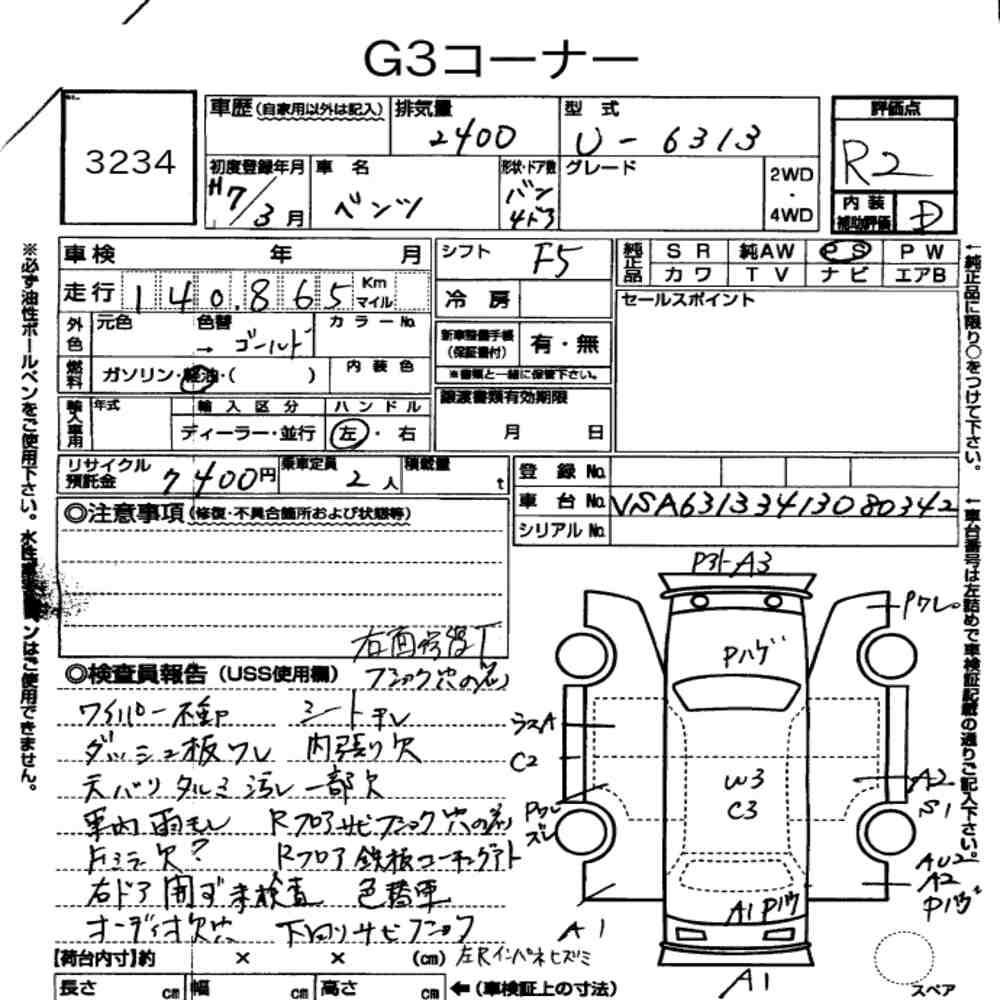 G3コーナー
3234
車歴 (自家用以外は記入)
排気量
2400
型 式
U-6313
評価点
R2
初度登録年月
H7/3月
車 名
ベンツ
形状・ドア数
バン
4ドア
グレード
2WD
・
4WD
内 装
補助評価
D
車検 年 月
シフト
F5
純正品
SR 純AW PS PW
カワ TV ナビ エアB
走行 140,865 Km マイル
冷 房
セールスポイント
外色
元色
色替
→ ゴールド
カラーNo.
新車整備手帳
(保証書付)
有・無
※書類と一緒に保管下さい。
燃料
ガソリン・軽油・( )
内装色
譲渡書類有効期限
月 日
輸入車用
年式
輸入区分
ディーラー・並行
ハンドル
左・右
リサイクル
預託金
7400円
乗車定員
2人
積載量
t
登録No.
車台No. VSA63133413080342
シリアルNo.
◎注意事項(修復・不具合箇所および状態等)
右面修復T
◎検査員報告(USS使用欄)
フニック穴の为
ワイパー不動 シートヤレ
ダッシュ板ワレ 内張り欠
天バリタルミ汚レ一部欠
車内雨モレ Rフロアサビフショク穴の为
Fミラー欠? Rフロア鉄板コーキングアト
右ドア開ず未検査 色替車
オーディオ欠穴 下回りサビフショク
左Rインパネヒズミ
【荷台内寸】約 × × (cm)
長さ cm 幅 cm 高さ cm ←(車検証上の寸法)
PヌケA3
Pワレ
Pハゲ
ラスA
C2
W3
C3
A2
S1
Pワレ
ズレ
AU2
A2
A1
A1
A1
スペア
※必ず油性ボールペンをご使用下さい。水性ボールペンはご使用できません。
←純正品に限り○をつけて下さい。
←車台番号は左詰めで車検証記載の通りご記入下さい。